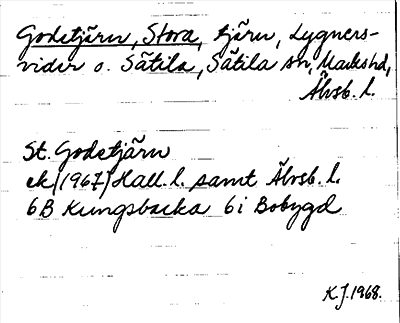 Godetjärn, Stora, tjärn, Lygners-
vider o. Sätila, Sätila sn, Marks hd,
Älvsb. l.
St. Godetjärn
ek (1967) Hall. l. samt Älvsb. l.
6B Kungsbacka 6i Bobygd
K.J. 1968.